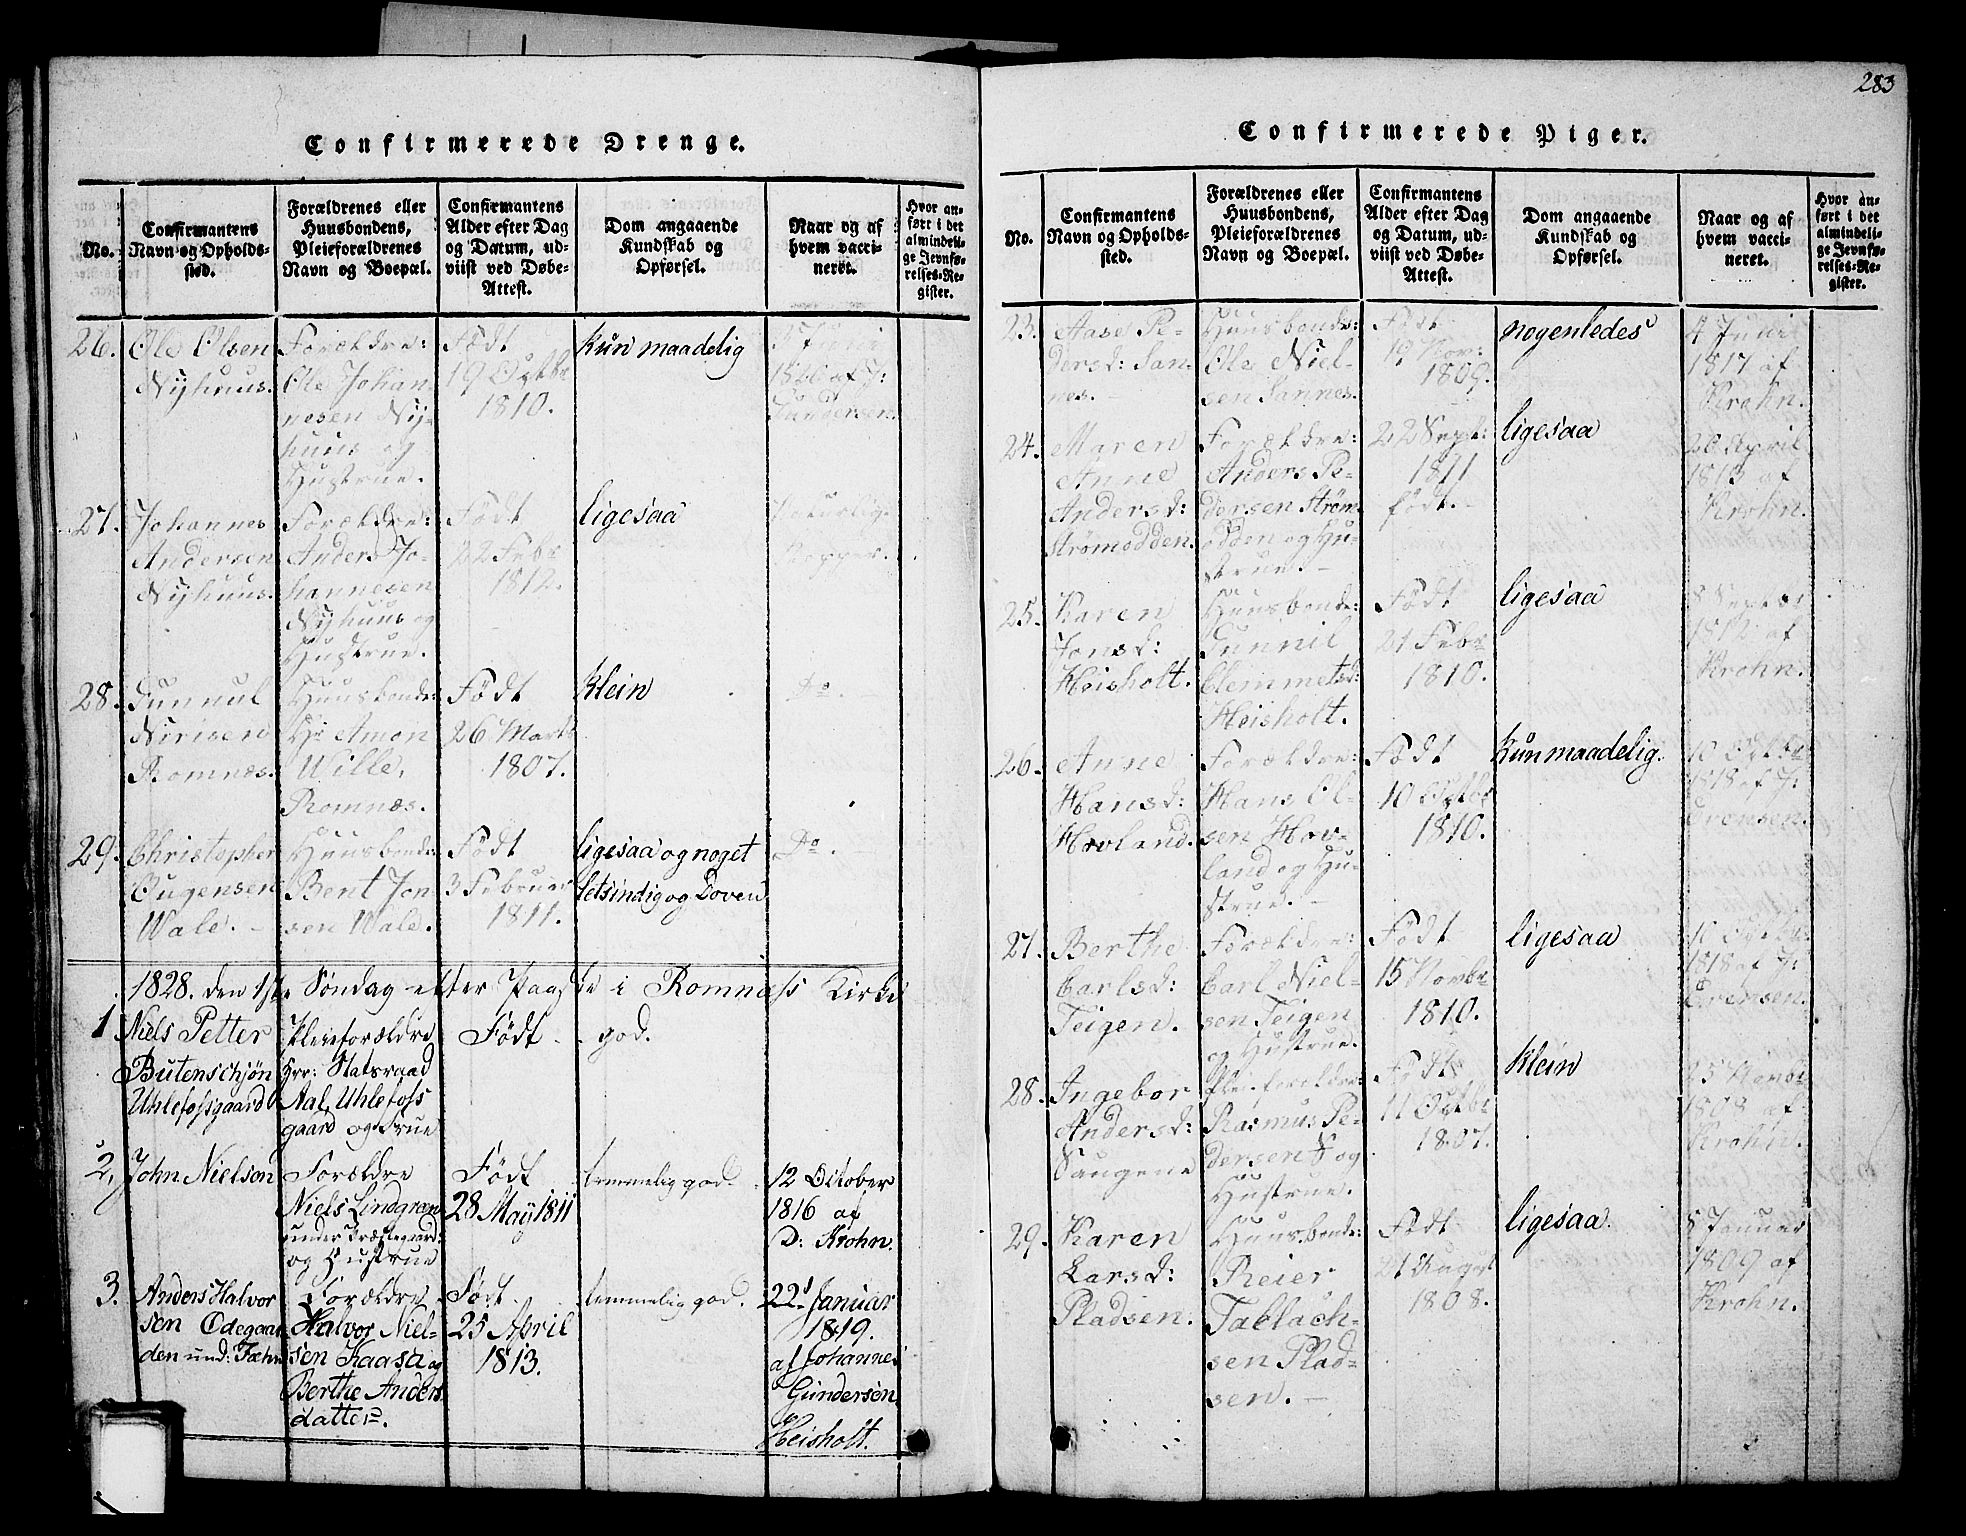 283
Confirmerede Drenge.
No.
Confirmantens
Navn og Opholds-
sted.
Forældrenes eller
Huusbondens,
Pleieforældrenes
Navn og Boepæl.
Confirmantens
Alder efter Dag
og Datum, ud-
viist ved Døbe-
Attest.
Dom angaaende
Kundskab og
Opførsel.
Naar og af
hvem vacci-
neret.
Hvor an-
ført i det
almindeli-
ge Jevnfø-
relses-Re-
gister.
26.
Ole Olsen
Nyhuus.
Forældre:
Ole Johan-
nesen Ny-
huus og
Hustrue.
Født
19 Octbr
1810.
kun maadelig
af J:
Gundersen.
27.
Johannes
Andersen
Nyhuus.
Forældre:
Anders Jo-
hannesen
Nyhuus og
Hustrue.
Født
22 Febr
1812.
ligesaa
28.
Gunnul
Nirisen
Romnæs.
Huusbonde:
Hr Amon
Wille,
Romnæs.
Født
26 Marts
1807.
klein
Do.
29.
Christopher
Ougensen
Wale.
Huusbonde:
Bent Jon-
sen Wale.
Født
3 Februar
1811.
ligesaa og noget
letsindig og Doven
Do.
1828. den 1ste Søndag efter Paaske i Romnæss Kirke
1
Niels Petter
Butenschjön
Uhlefossgaard
Pleieforældre
Hrr: Statsraad
Aal, Uhlefoss
gaard og Frue
Født
god.
2,
John Nielson
Forældre
Niels Lindgren
under Præstegaard:
og Hustrue
Født
28 May 1811
temmelig god.
12 October
1816 af
D: Krohn.
3.
Anders Halvor
sen Ödegaar
den und: Fæhn
Forældre
Halvor Niel-
sen Kaasa og
Berthe Anders
datter.
Født
25 April
1813.
temmelig god.
22d Januar
1819.
af Johannes
Gundersen
Heisholt.
Confirmerede Piger.
No.
Confirmantens
Navn og Opholds-
sted.
Forældrenes eller
Huusbondens,
Pleieforældrenes
Navn og Boepæl.
Confirmantens
Alder efter Dag
og Datum, ud-
viist ved Døbe-
Attest.
Dom angaaende
Kundskab og
Opførsel.
Naar og af
hvem vacci-
neret.
Hvor an-
ført i det
almindeli-
ge Jevnfø-
relses-Re-
gister.
23.
Aase Pe-
dersd: San-
nes.
Huusbonde:
Ole Niel-
sen Sannes.
Født
Nov:
1809.
nogenledes
4 Juni
1817 af
Krohn.
24.
Maren
Anne
Andersd:
Strömodden.
Forældre:
Anders Pe-
dersen Ström-
odden og Hu-
strue.
22 Sept:
1811
født.
ligesaa
20 April
1813 af
Krohn.
25.
Karen
Jonsd:
Heisholt.
Huusbonde:
Gunnil
Clemmetsd:
Heisholt.
Født
21 Febr
1810.
ligesaa
8 Septbr
1812 af
Krohn.
26.
Anne
Hansd:
Hovland.
Forældre:
Hans Ol-
sen Hov-
land og Hu-
strue.
Født
10 Octbr
1810.
Kun maadelig.
10 Octbr
1818 af J:
27.
Berthe
Carlsd:
Teigen.
Forældre:
Carl Niel-
sen Teigen
og Hustrue.
Født
15 Novbr
1810.
ligesaa
10 Octbr
1818 af J:
28.
Ingebor
Andersd:
Saugene
Pleieforældre:
Rasmus Pe-
dersen S og
Hustrue.
Født
11 Octbr
1807.
klein
25 Novbr
1808 af
Krohn.
29.
Karen
Larsd:
Pladsen.
Huusbonde:
Reier
Tablach-
sen Plad-
sen.
Født
21 August
1808.
ligesaa.
8 Januar
1809 af
Krohn.